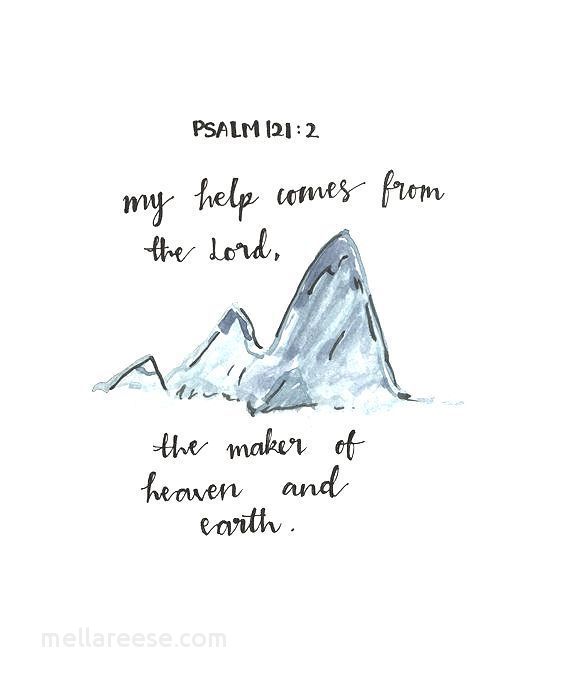 PSALM 121:2
my help comes from
the Lord,
the maker of
heaven and
earth.
mellareese.com